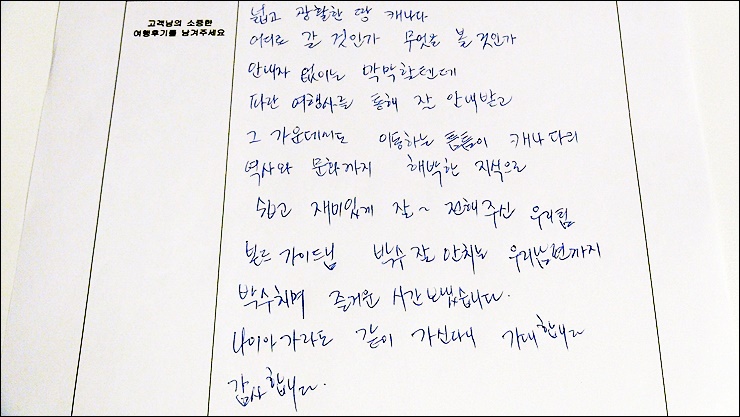 고객님의 소중한
여행후기를 남겨주세요
넓고 광활한 땅 캐나다
어디로 갈 것인가 무엇을 볼 것인가
안내자 없이는 막막할텐데
파란 여행사를 통해 잘 안내받고
그 가운데에서도 이동하는 틈틈이 캐나다의
역사와 문화까지 해박한 지식으로
쉽고 재미있게 잘~ 전해주신 우리팀
가이드님 박수 잘 안치는 우리남편까지
박수치며 즐거운 시간 보냈습니다.
나이아가라도 같이 가신다니 기대합니다
감사합니다.